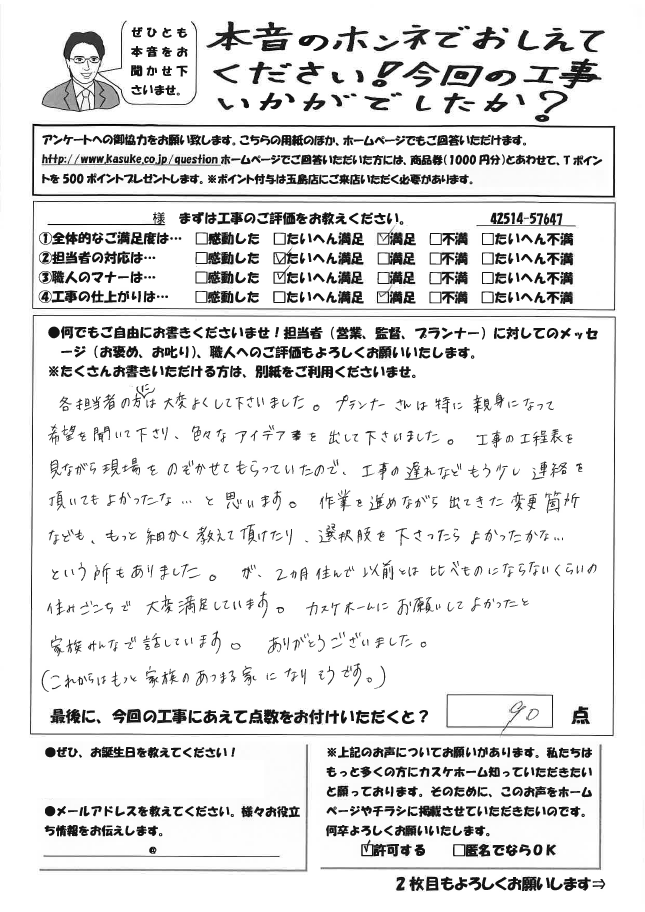 ぜひとも
本音をお
聞かせ下
さいませ。
本音のホンネでおしえて
ください!今回の工事
いかがでしたか?
アンケートへの御協力をお願い致します。こちらの用紙のほか、ホームページでもご回答いただけます。
http://www.kasuke.co.jp/questionホームページでご回答いただいた方には、商品券(1000円分)とあわせて、Tポイン
トを500ポイントプレゼントします。※ポイント付与は玉島店にご来店いただく必要があります。
様 まずは工事のご評価をお教えください。 42514-57647
①全体的なご満足度は… □感動した □たいへん満足 ☑満足 □不満 □たいへん不満
②担当者の対応は… □感動した ☑たいへん満足 □満足 □不満 □たいへん不満
③職人のマナーは… □感動した ☑たいへん満足 □満足 □不満 □たいへん不満
④工事の仕上がりは… □感動した □たいへん満足 ☑満足 □不満 □たいへん不満
●何でもご自由にお書きくださいませ!担当者(営業、監督、プランナー)に対してのメッセ
ージ(お褒め、お叱り)、職人へのご評価もよろしくお願いいたします。
※たくさんお書きいただける方は、別紙をご利用くださいませ。
各担当者の方には大変よくして下さいました。プランナーさんは特に親身になって
希望を聞いて下さり、色々なアイデアを出して下さいました。工事の工程表を
見ながら現場をのぞかせてもらっていたので、工事の遅れなどもう少し連絡を
頂いてもよかったな…と思います。作業を進めながら出てきた変更箇所
なども、もっと細かく教えて頂けたり、選択肢を下さったらよかったかな…
という所もありました。が、2カ月住んで以前とは比べものにならないくらいの
住みごこちで大変満足しています。カスケホームにお願いしてよかったと
家族みんなで話しています。ありがとうございました。
(これからはもっと家族のあつまる家になりそうです。)
最後に、今回の工事にあえて点数をお付けいただくと? 90 点
●ぜひ、お誕生日を教えてください!
●メールアドレスを教えてください。様々お役立
ち情報をお伝えします。
@
※上記のお声についてお願いがあります。私たちは
もっと多くの方にカスケホーム知っていただきたい
と願っております。そのために、このお声をホーム
ページやチラシに掲載させていただきたいのです。
何卒よろしくお願いいたします。
☑許可する □匿名でならOK
2枚目もよろしくお願いします⇒